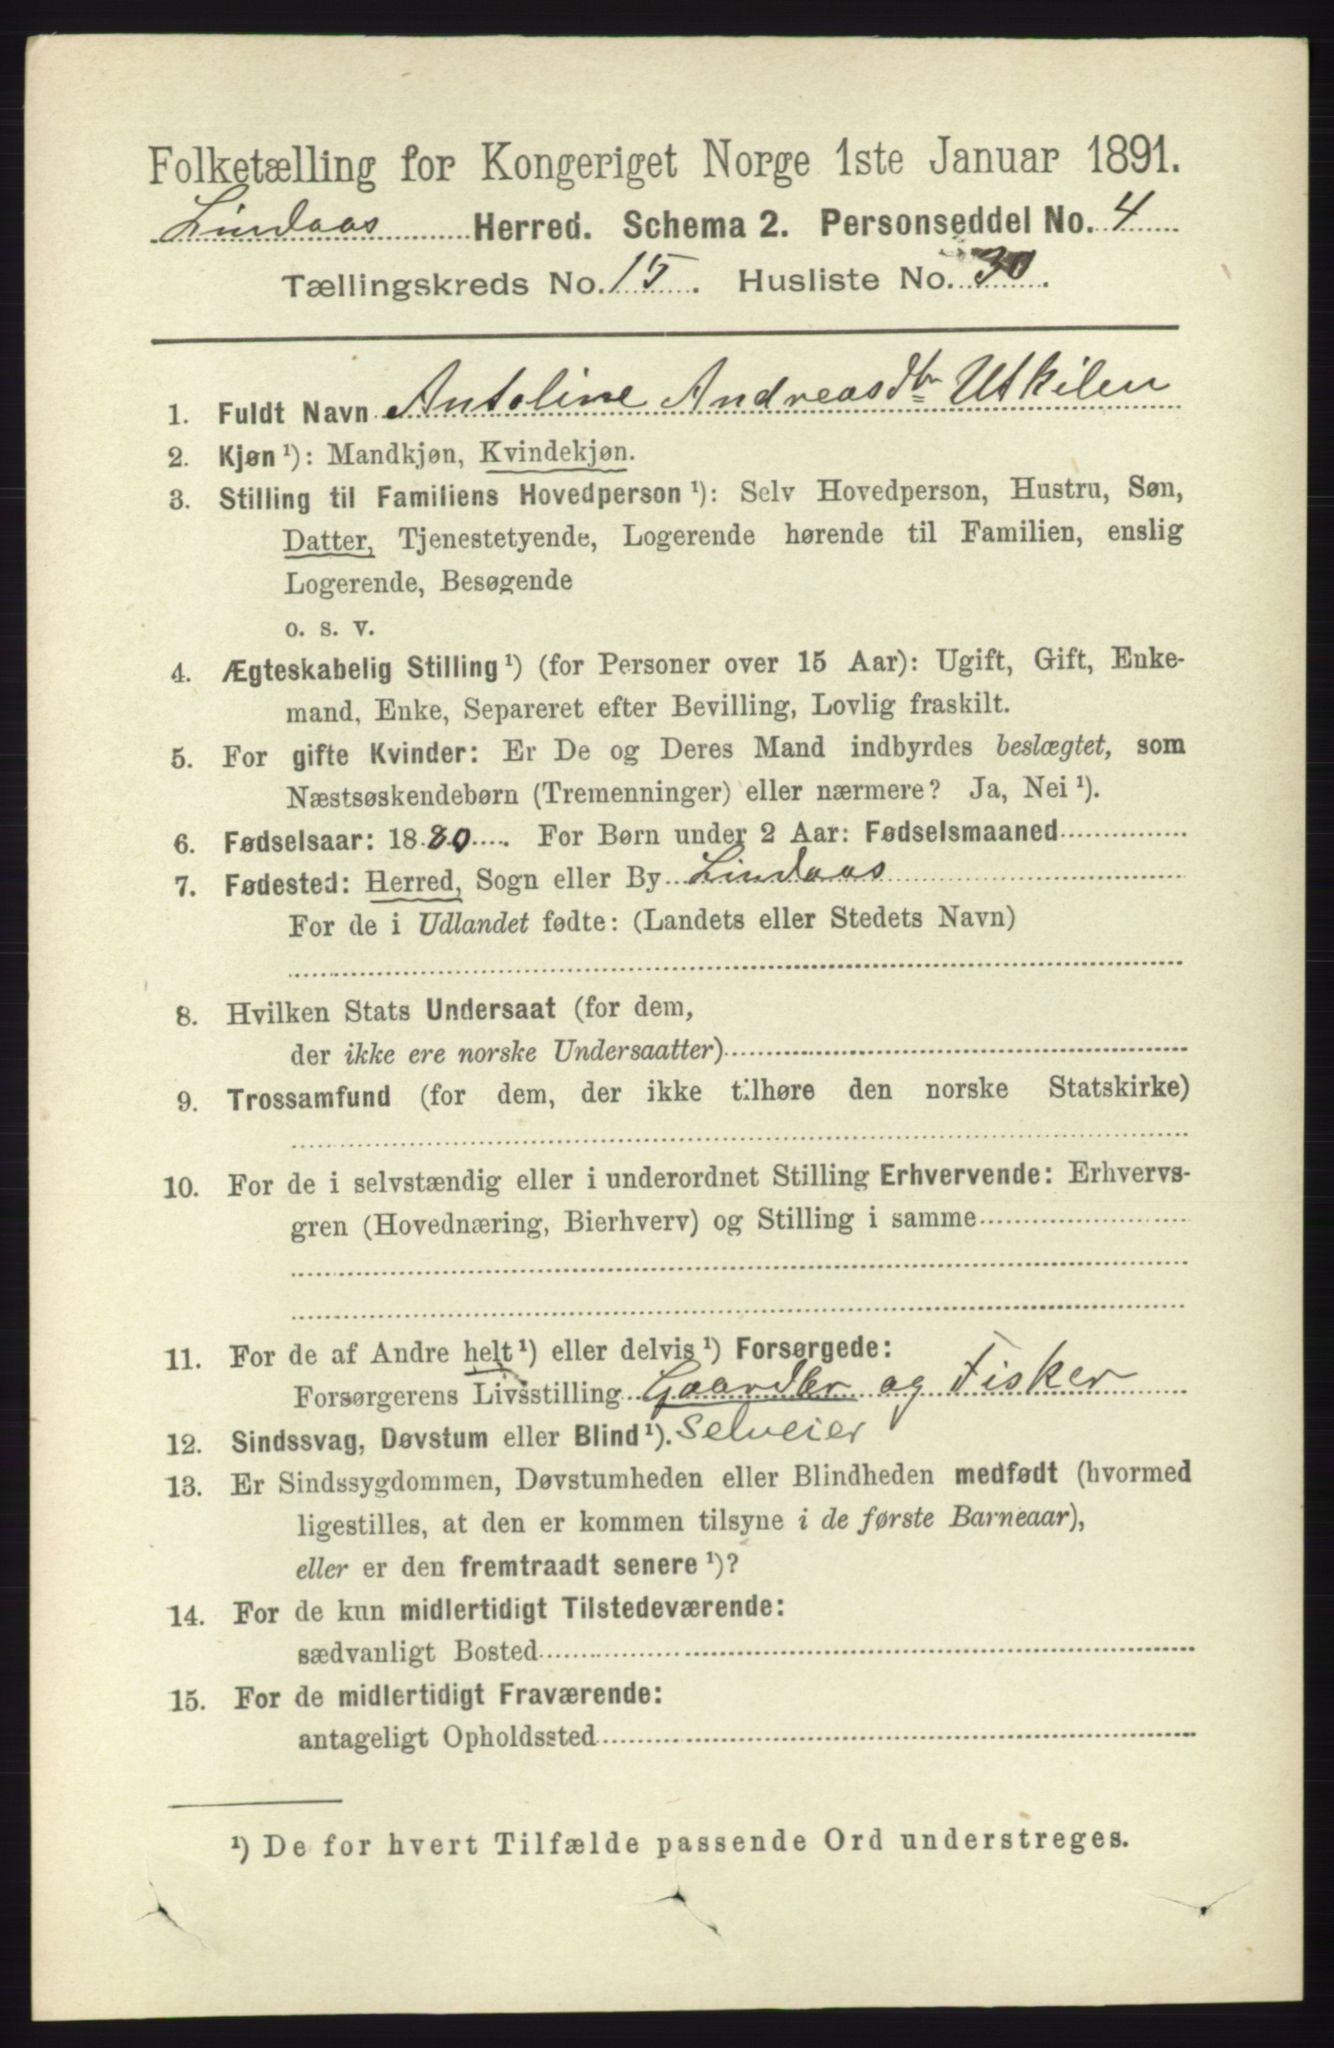 Folketælling for Kongeriget Norge 1ste Januar 1891.
Lindaas Herred. Schema 2. Personseddel No. 4
Tællingskreds No. 15. Husliste No. 30.
1. Fuldt Navn Antoline Andreasdtr Utkilen
2. Kjøn¹): Mandkjøn, Kvindekjøn.
3. Stilling til Familiens Hovedperson¹): Selv Hovedperson, Hustru, Søn,
Datter, Tjenestetyende, Logerende hørende til Familien, enslig
Logerende, Besøgende
o. s. v.
4. Ægteskabelig Stilling¹) (for Personer over 15 Aar): Ugift, Gift, Enke-
mand, Enke, Separeret efter Bevilling, Lovlig fraskilt.
5. For gifte Kvinder: Er De og Deres Mand indbyrdes beslægtet, som
Næstsøskendebørn (Tremenninger) eller nærmere? Ja, Nei¹).
6. Fødselsaar: 1880. For Børn under 2 Aar: Fødselsmaaned
7. Fødested: Herred, Sogn eller By Lindaas
For de i Udlandet fødte: (Landets eller Stedets Navn)
8. Hvilken Stats Undersaat (for dem,
der ikke ere norske Undersaatter)
9. Trossamfund (for dem, der ikke tilhøre den norske Statskirke)
10. For de i selvstændig eller i underordnet Stilling Erhvervende: Erhvervs-
gren (Hovednæring, Bierhverv) og Stilling i samme
11. For de af Andre helt¹) eller delvis¹) Forsørgede:
Forsørgerens Livsstilling Gaardbr og Fisker
12. Sindssvag, Døvstum eller Blind¹). Selveier
13. Er Sindssygdommen, Døvstumheden eller Blindheden medfødt (hvormed
ligestilles, at den er kommen tilsyne i de første Barneaar),
eller er den fremtraadt senere¹)?
14. For de kun midlertidigt Tilstedeværende:
sædvanligt Bosted
15. For de midlertidigt Fraværende:
antageligt Opholdssted
¹) De for hvert Tilfælde passende Ord understreges.